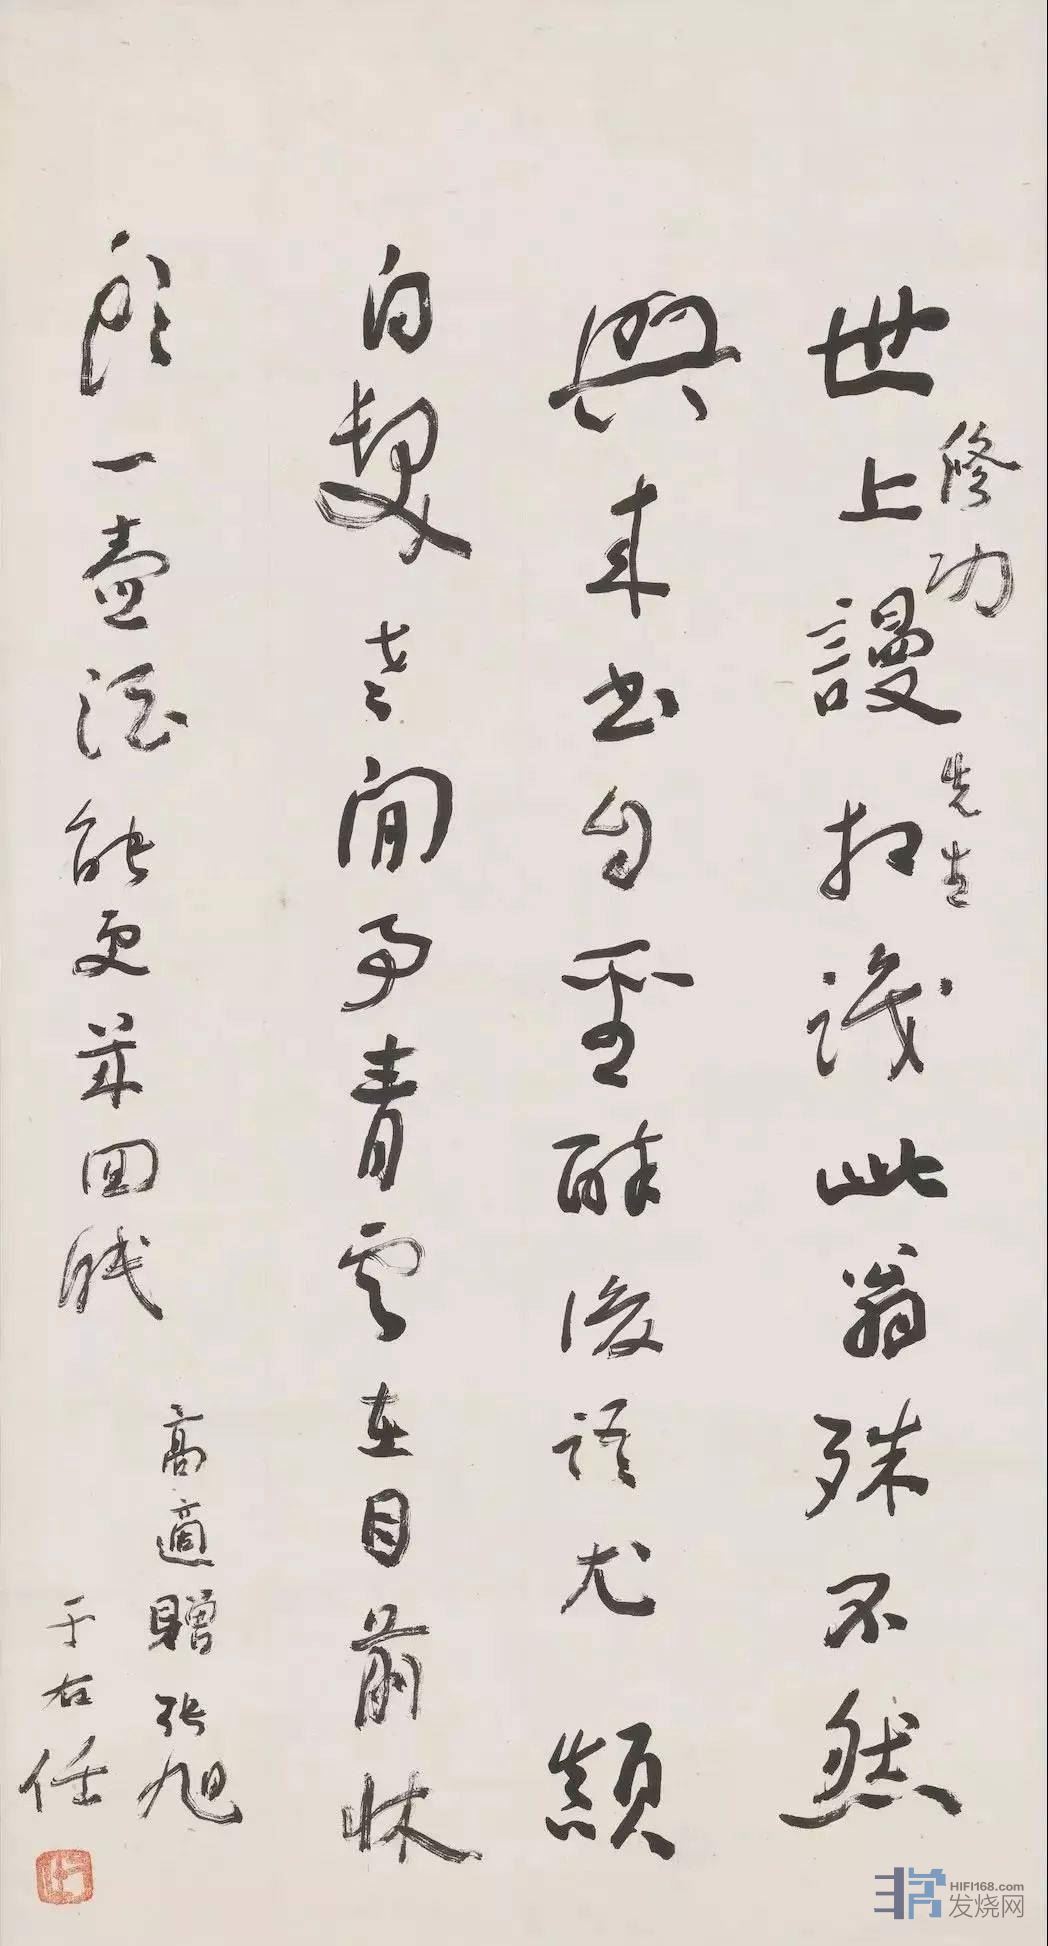 世上謾相識此翁殊不然
修功先生
興來書自聖醉後語尤顛
白髮老閒事青雲在目前牀
頭一壺酒能更幾回眠
高適贈張旭
于右任
HIFI168.com
发烧网